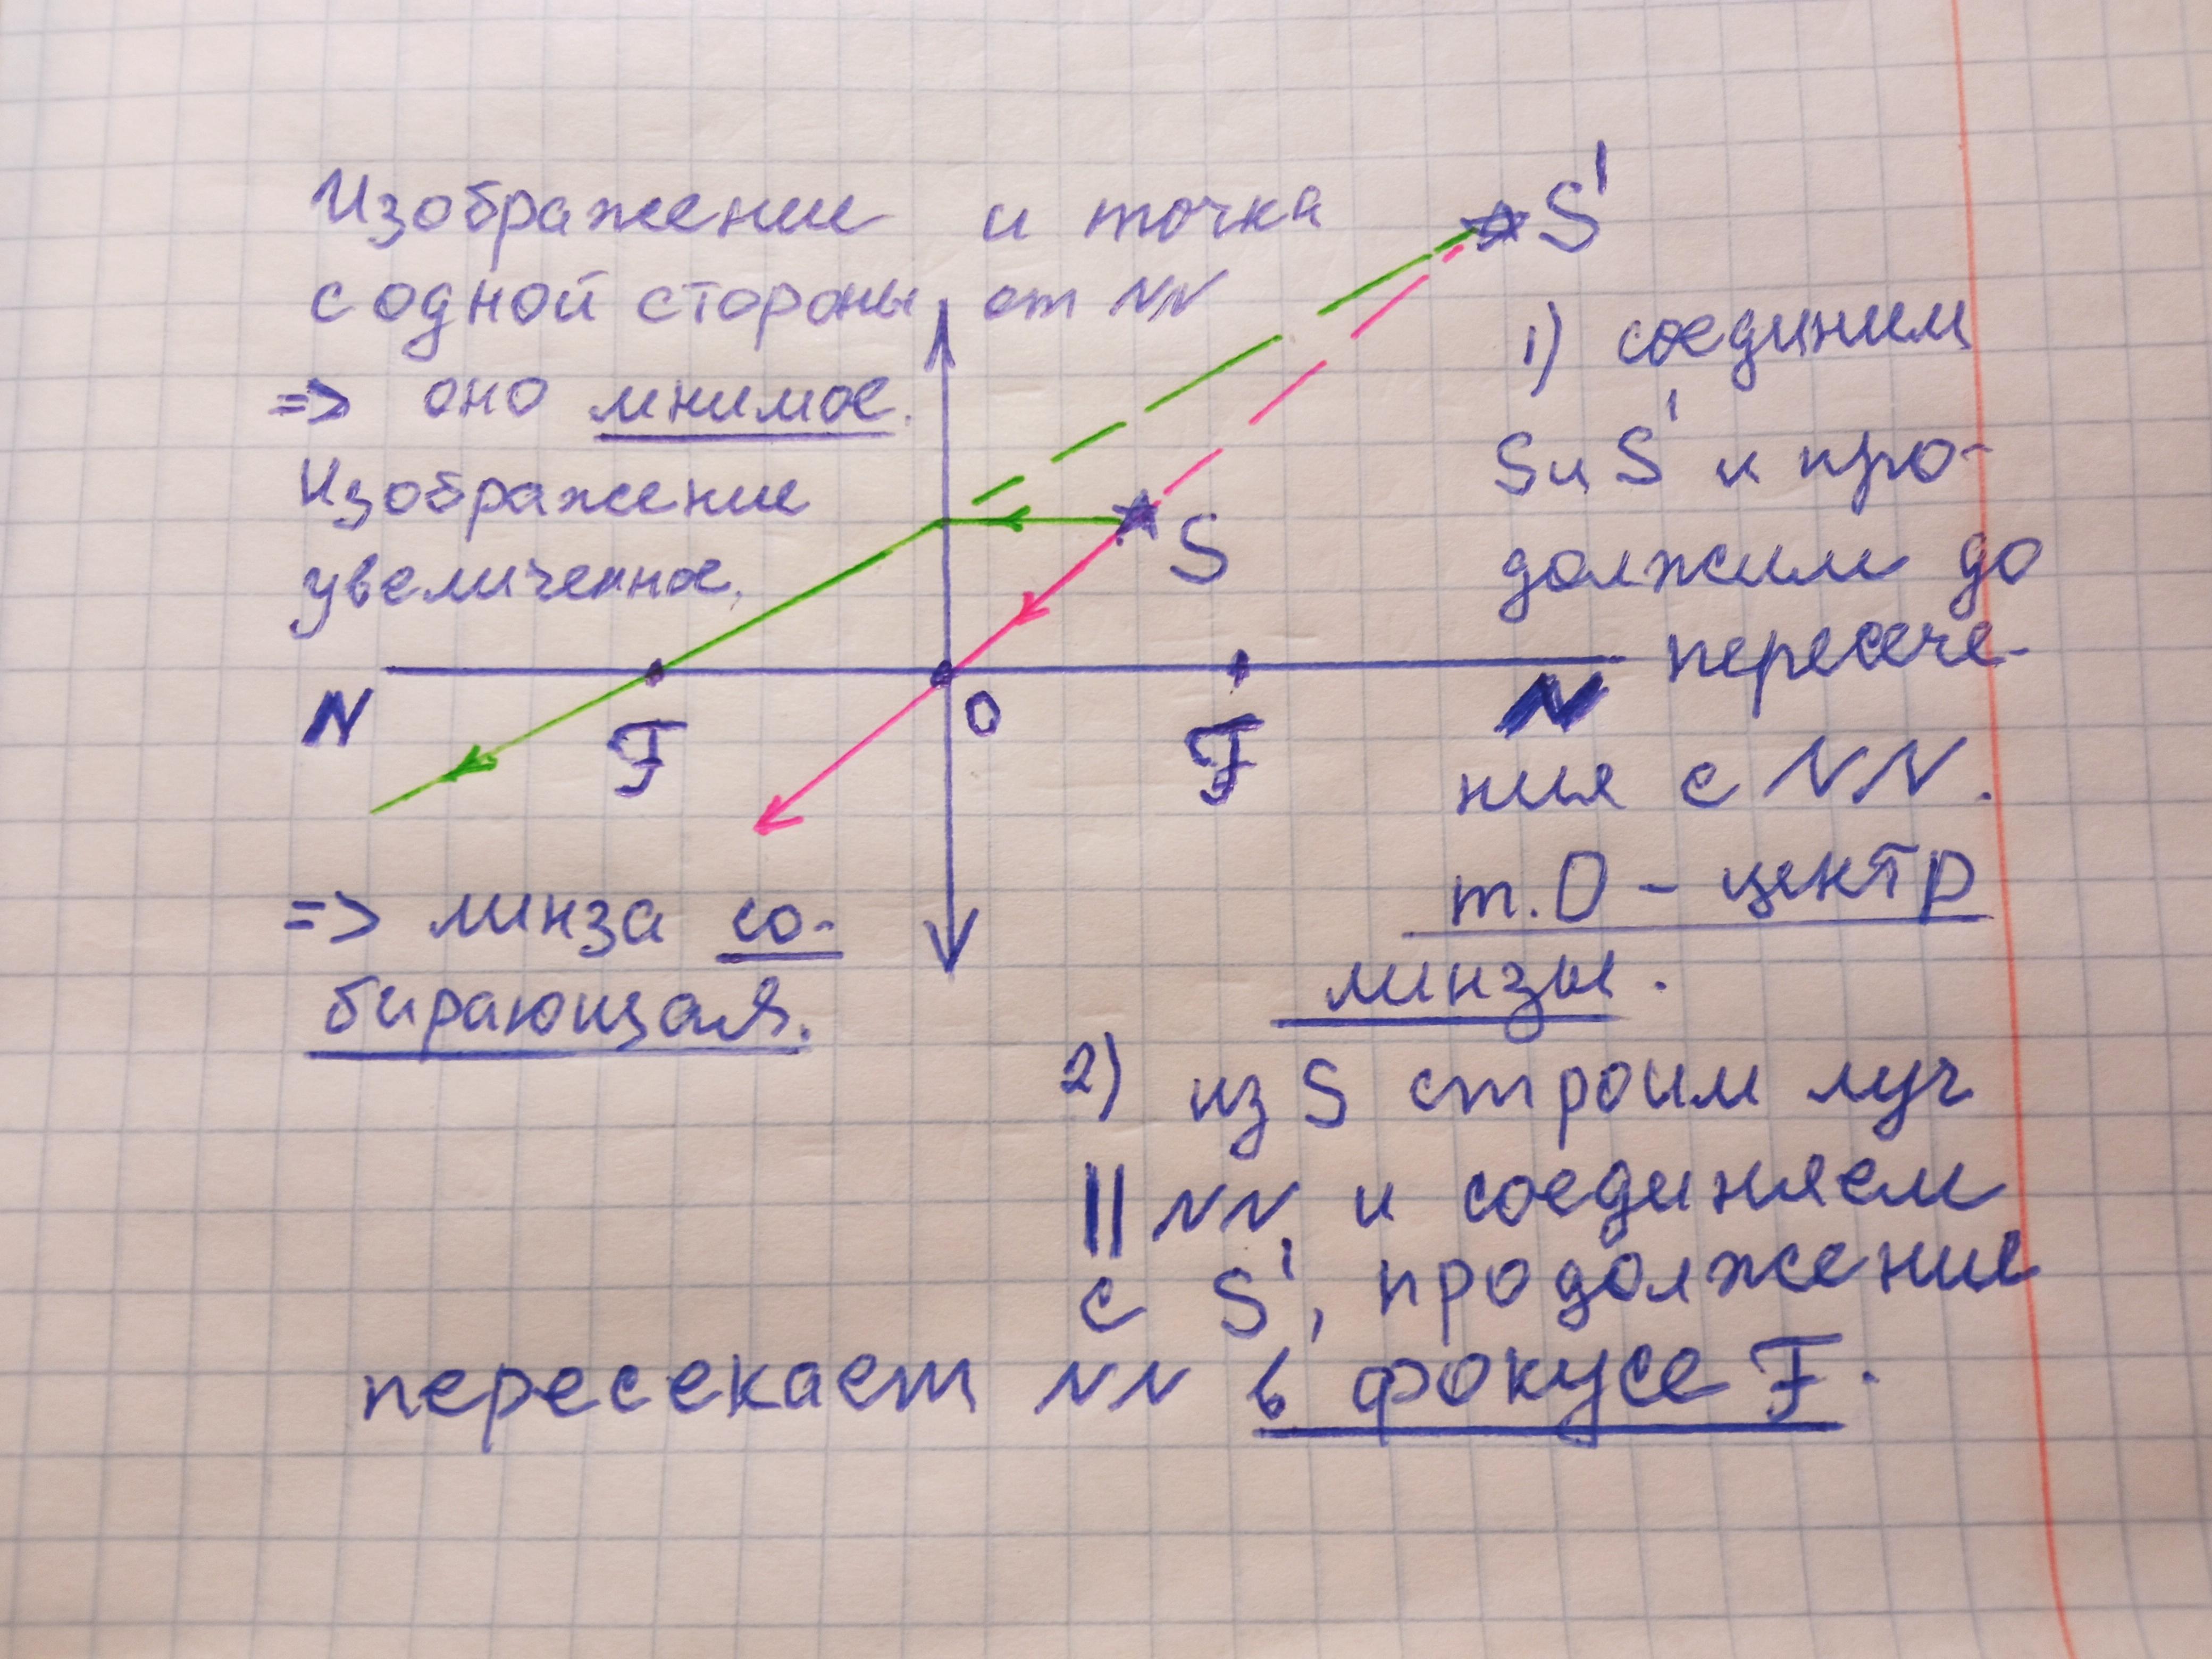 Изображение и точка
с одной стороны от NN
=> оно мнимое.
Изображение
увеличенное.
S'
S
N
F
O
F
N
=> линза со-
бирающая.
1) соединим
S и S' и про-
должим до
пересече-
ния с NN.
т. О - центр
линзы.
2) из S строим луч
|| NN и соединяем
с S', продолжение
пересекает NN в фокусе F.